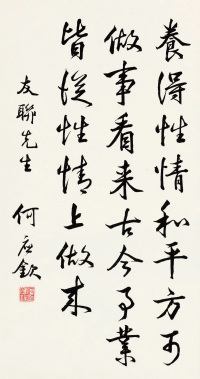 養得性情和平方可
做事看来古今事業
皆從性情上做来
友聯先生
何应欽